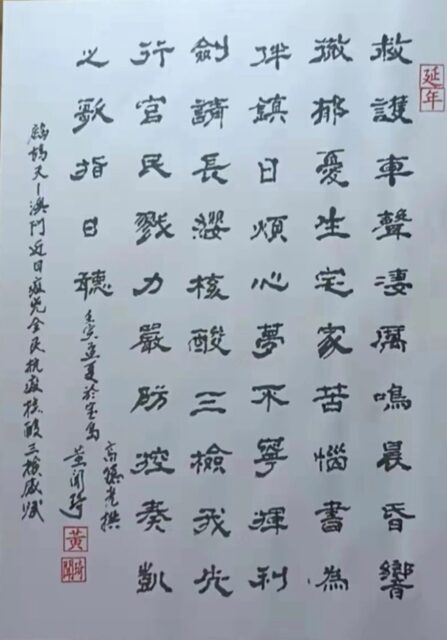 延年
救護車聲淒厲鳴晨昏響
徹郁憂生宅家苦惱書為
伴鎮日煩心夢不寧揮利
劍請長纓核酸三檢我先
行官民戮力嚴防控奏凱
之歌指日聽
壬寅夏於
高德撰
黃
鷓鴣天—澳門近日疫全民抗疫核酸三檢感賦
黃